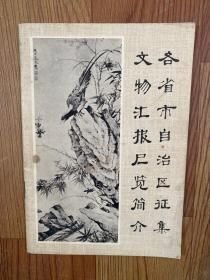 各省市自治区征集
文物汇报展览简介